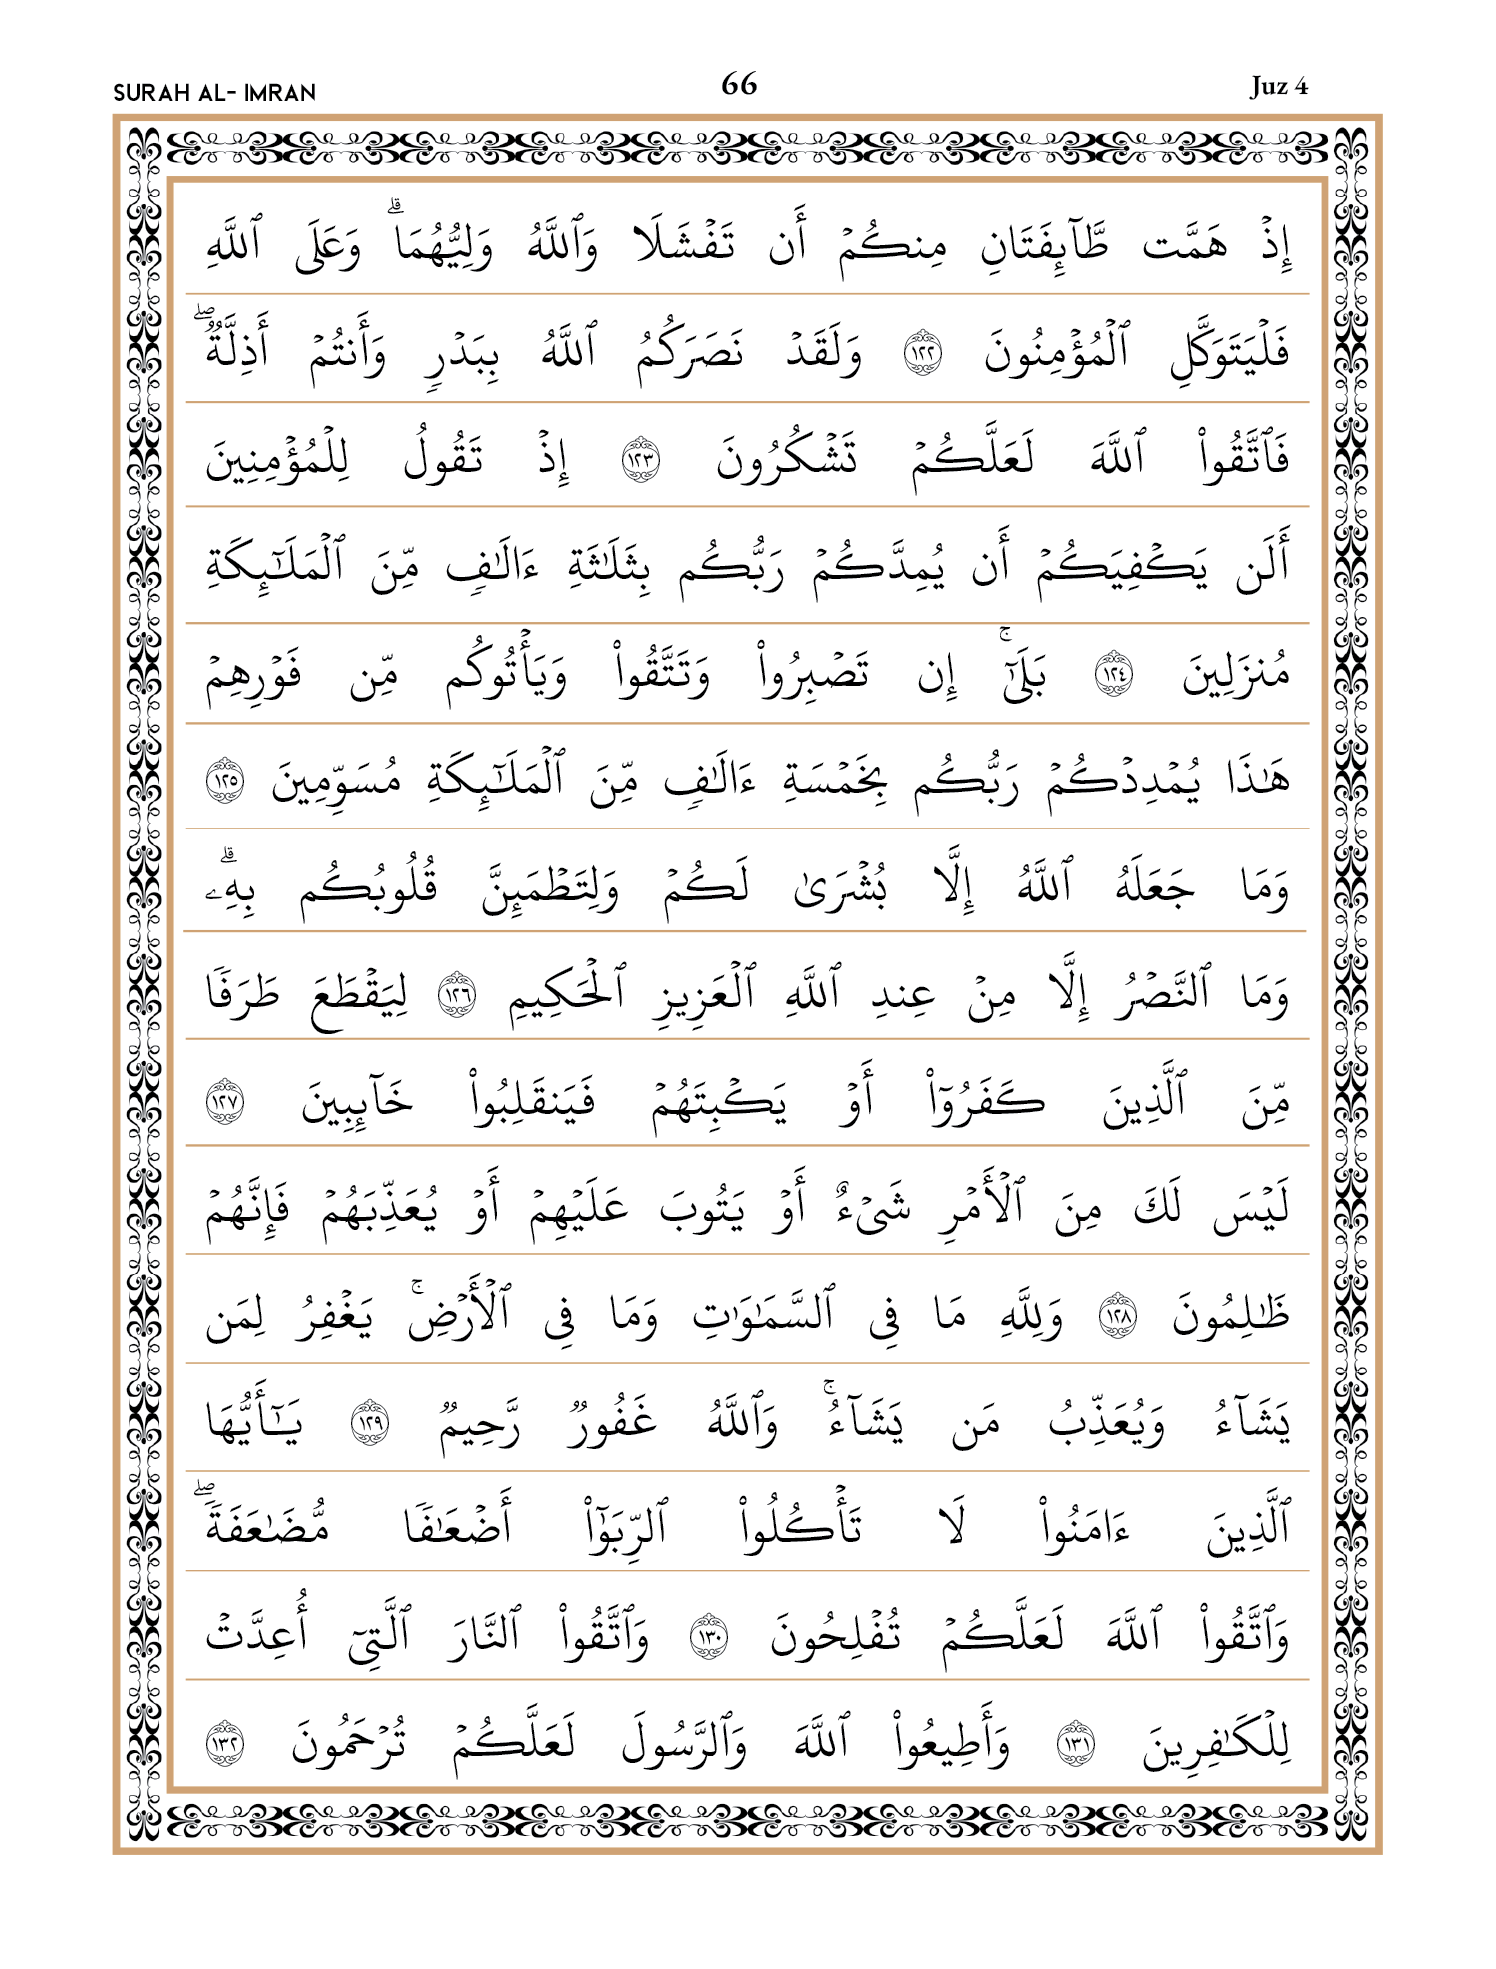 SURAH AL- IMRAN 66 Juz 4
إِذۡ هَمَّت طَّآئِفَتَانِ مِنكُمۡ أَن تَفۡشَلَا وَٱللَّهُ وَلِيُّهُمَاۗ وَعَلَى ٱللَّهِ
فَلۡيَتَوَكَّلِ ٱلۡمُؤۡمِنُونَ ١٢٢ وَلَقَدۡ نَصَرَكُمُ ٱللَّهُ بِبَدۡرٖ وَأَنتُمۡ أَذِلَّةٞۖ
فَٱتَّقُواْ ٱللَّهَ لَعَلَّكُمۡ تَشۡكُرُونَ ١٢٣ إِذۡ تَقُولُ لِلۡمُؤۡمِنِينَ
أَلَن يَكۡفِيَكُمۡ أَن يُمِدَّكُمۡ رَبُّكُم بِثَلَٰثَةِ ءَالَٰفٖ مِّنَ ٱلۡمَلَٰٓئِكَةِ
مُنزَلِينَ ١٢٤ بَلَىٰٓۚ إِن تَصۡبِرُواْ وَتَتَّقُواْ وَيَأۡتُوكُم مِّن فَوۡرِهِمۡ
هَٰذَا يُمۡدِدۡكُمۡ رَبُّكُم بِخَمۡسَةِ ءَالَٰفٖ مِّنَ ٱلۡمَلَٰٓئِكَةِ مُسَوِّمِينَ ١٢٥
وَمَا جَعَلَهُ ٱللَّهُ إِلَّا بُشۡرَىٰ لَكُمۡ وَلِتَطۡمَئِنَّ قُلُوبُكُم بِهِۦۗ
وَمَا ٱلنَّصۡرُ إِلَّا مِنۡ عِندِ ٱللَّهِ ٱلۡعَزِيزِ ٱلۡحَكِيمِ ١٢٦ لِيَقۡطَعَ طَرَفٗا
مِّنَ ٱلَّذِينَ كَفَرُوٓاْ أَوۡ يَكۡبِتَهُمۡ فَيَنقَلِبُواْ خَآئِبِينَ ١٢٧
لَيۡسَ لَكَ مِنَ ٱلۡأَمۡرِ شَيۡءٌ أَوۡ يَتُوبَ عَلَيۡهِمۡ أَوۡ يُعَذِّبَهُمۡ فَإِنَّهُمۡ
ظَٰلِمُونَ ١٢٨ وَلِلَّهِ مَا فِي ٱلسَّمَٰوَٰتِ وَمَا فِي ٱلۡأَرۡضِۚ يَغۡفِرُ لِمَن
يَشَآءُ وَيُعَذِّبُ مَن يَشَآءُۚ وَٱللَّهُ غَفُورٞ رَّحِيمٞ ١٢٩ يَٰٓأَيُّهَا
ٱلَّذِينَ ءَامَنُواْ لَا تَأۡكُلُواْ ٱلرِّبَوٰٓاْ أَضۡعَٰفٗا مُّضَٰعَفَةٗۖ
وَٱتَّقُواْ ٱللَّهَ لَعَلَّكُمۡ تُفۡلِحُونَ ١٣٠ وَٱتَّقُواْ ٱلنَّارَ ٱلَّتِيٓ أُعِدَّتۡ
لِلۡكَٰفِرِينَ ١٣١ وَأَطِيعُواْ ٱللَّهَ وَٱلرَّسُولَ لَعَلَّكُمۡ تُرۡحَمُونَ ١٣٢